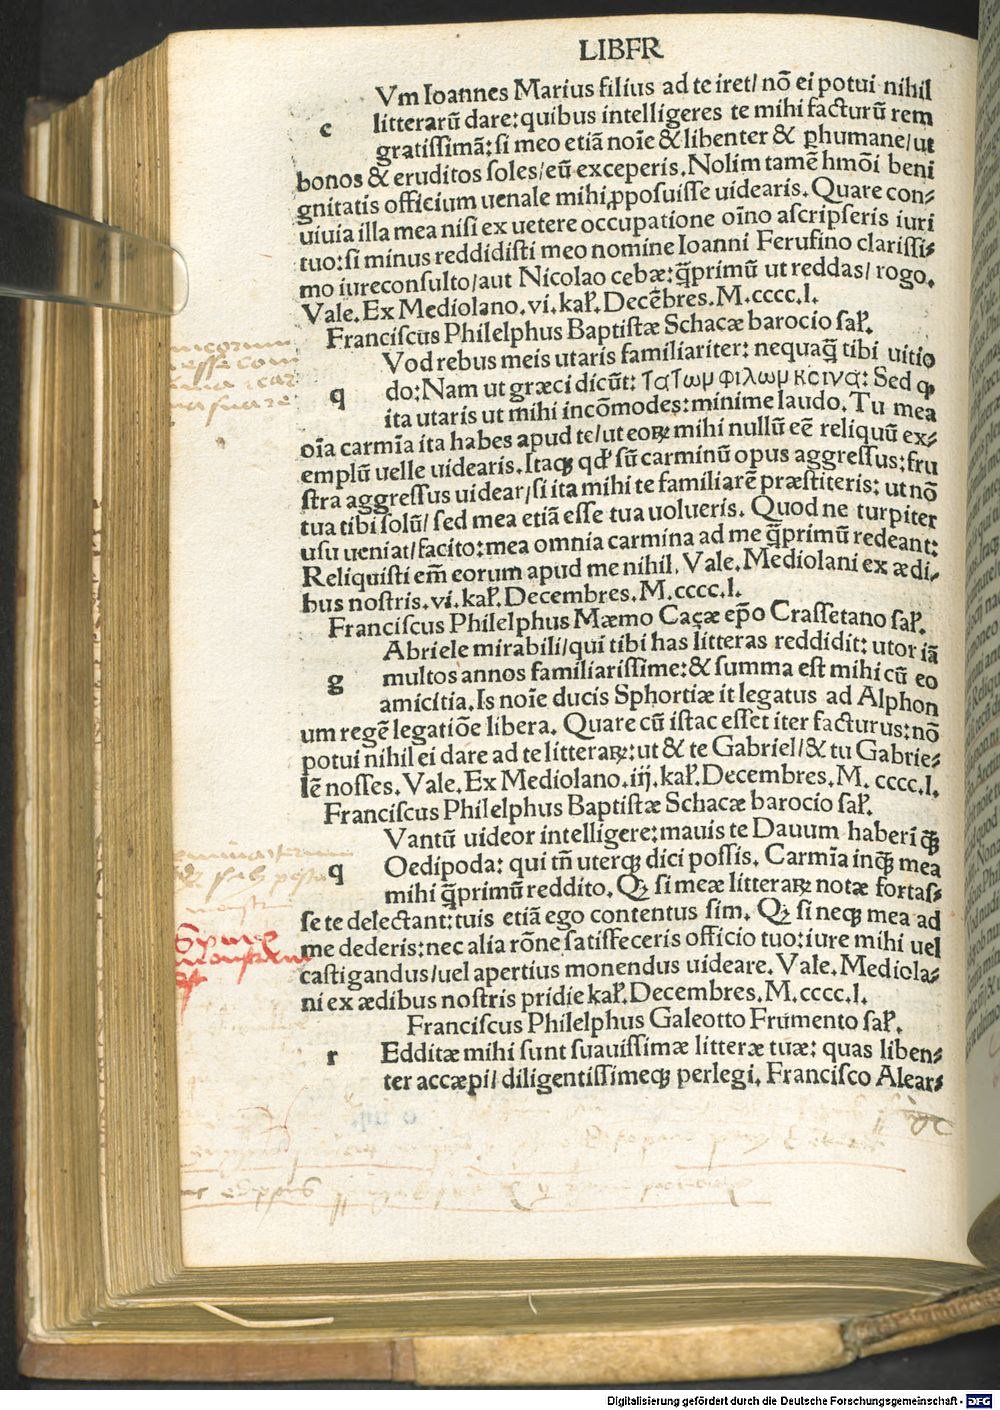 LIBER
Vm Ioannes Marius filius ad te iret/ nō ei potui nihil
c litterarū dare: quibus intelligeres te mihi facturū rem
gratissimā: si meo etiā noīe & libenter & ꝑhumane/ ut
bonos & eruditos soles/ eū exceperis. Nolim tamē hmōi beni
gnitatis officium uenale mihi ꝓposuisse uidearis. Quare con⸗
uiuia illa mea nisi ex uetere occupatione oīno ascripseris iuri
tuo: si minus reddidisti meo nomine Ioanni Ferufino clarissi⸗
mo iureconsulto/ aut Nicolao cebæ: q̄primū ut reddas/ rogo.
Vale. Ex Mediolano. vi. kaƚ. Decēbres. M. cccc. l.
Franciscus Philelphus Baptistæ Schacæ barocio saƚ.
Vod rebus meis utaris familiariter: nequaq̄ tibi uitio
q do: Nam ut græci dicūt: τατωμ φιλωμ κοινα: Sed ꝙ
ita utaris ut mihi incōmodes: minime laudo. Tu mea
oīa carmīa ita habes apud te/ ut eoꝝ mihi nullū eē reliquū ex⸗
emplū uelle uidearis. Itaqꝫ qd' sū carminū opus aggressus: fru
stra aggressus uidear/ si ita mihi te familiarē præstiteris: ut nō
tua tibi solū/ sed mea etiā esse tua uolueris. Quod ne turpiter
usu ueniat/ facito: mea omnia carmina ad me q̄primū redeant:
Reliquisti em̄ eorum apud me nihil. Vale. Mediolani ex ædi⸗
bus nostris. vi. kaƚ. Decembres. M. cccc. l.
Franciscus Philelphus Mæmo Caçæ ep̄o Crassetano saƚ.
Abriele mirabili/ qui tibi has litteras reddidit: utor iā
g multos annos familiarissime: & summa est mihi cū eo
amicitia. Is noīe ducis Sphortiæ it legatus ad Alphon
um regē legatiōe libera. Quare cū istac esset iter facturus: nō
potui nihil ei dare ad te litteraꝝ: ut & te Gabriel/ & tu Gabrie⸗
lē nosses. Vale. Ex Mediolano. iij. kaƚ. Decembres. M. cccc. l.
Franciscus Philelphus Baptistæ Schacæ barocio saƚ.
Vantū uideor intelligere: mauis te Dauum haberi q̄ꝫ
q Oedipoda: qui tn̄ uterqꝫ dici possis. Carmīa inq̄ꝫ mea
mihi q̄primū reddito. Qꝫ si meæ litteraꝝ notæ fortas⸗
se te delectant: tuis etiā ego contentus sim. Qꝫ si neqꝫ mea ad
me dederis: nec alia rōne satisfeceris officio tuo: iure mihi uel
castigandus/ uel apertius monendus uideare. Vale. Mediola⸗
ni ex ædibus nostris pridie kaƚ. Decembres. M. cccc. l.
Franciscus Philelphus Galeotto Frumento saƚ.
r Edditæ mihi sunt suauissimæ litteræ tuæ: quas liben⸗
ter accæpi/ diligentissimeqꝫ perlegi. Francisco Alear⸗
Digitalisierung gefördert durch die Deutsche Forschungsgemeinschaft - DFG